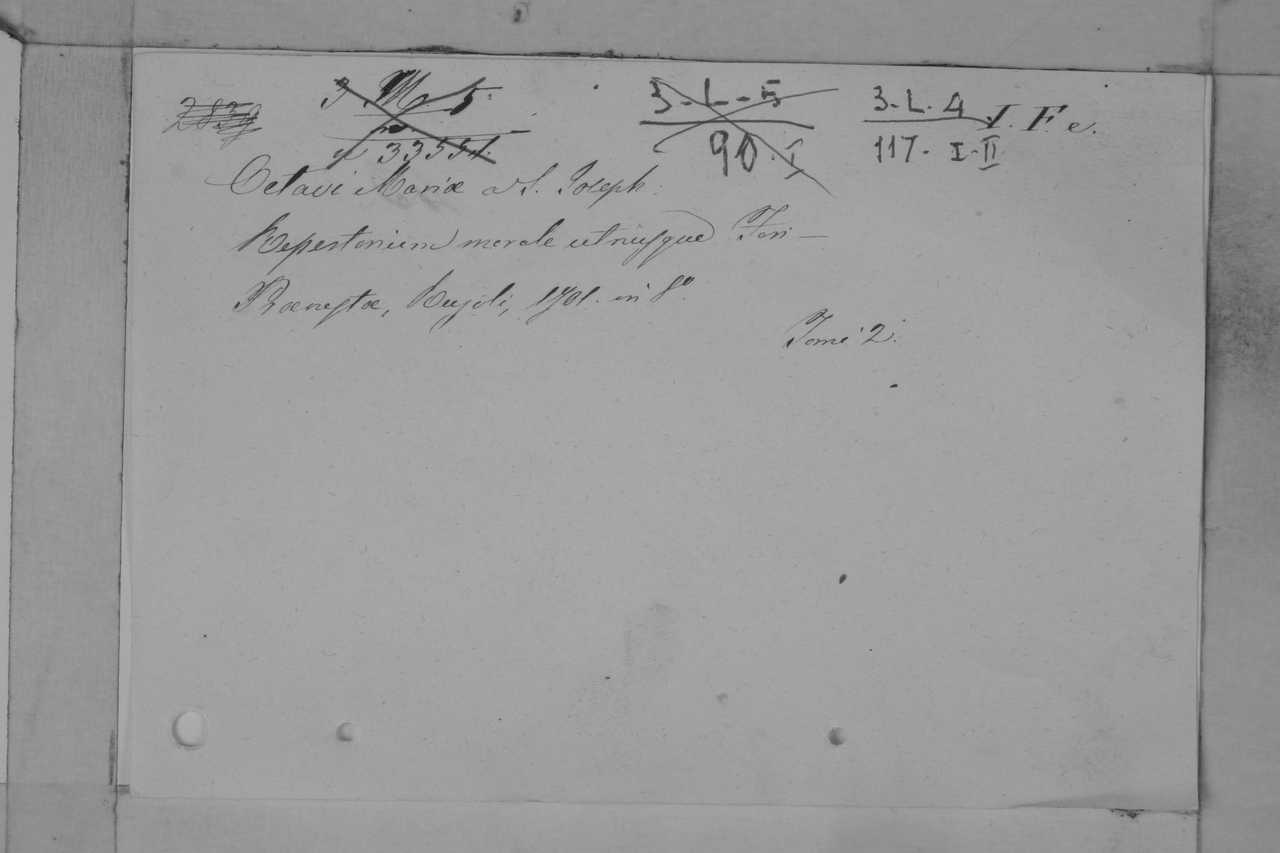 2839
3 M 5
a 33551
3-L-5
90-I
3-L-4
117-I-II
I. F. e.
Octavi Mariæ a S. Joseph:
Repertorium morale utriusque Fori —
1701. in 8º
Tomi 2.